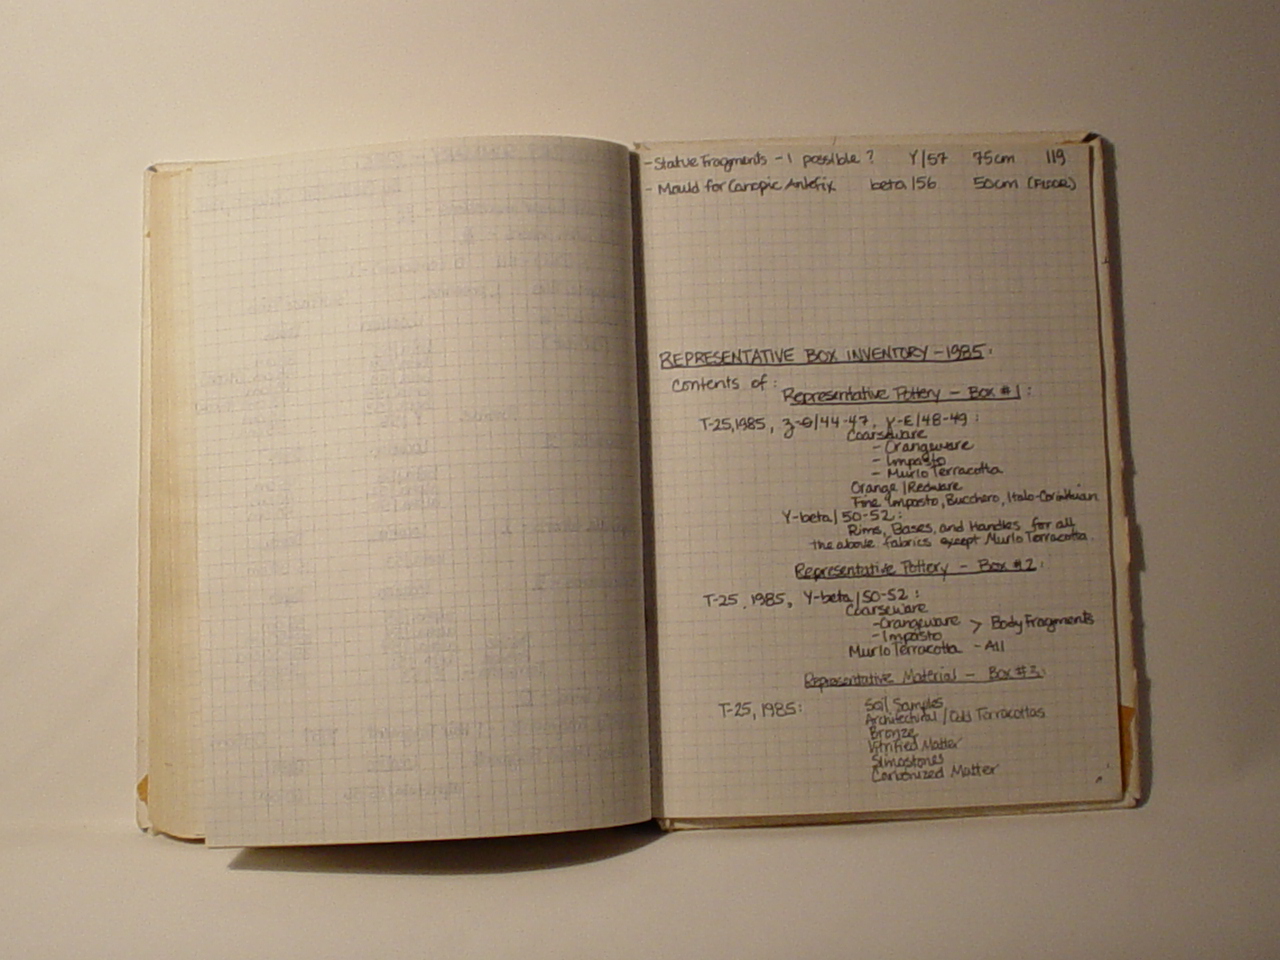 - Statue Fragments - 1 possible ? Y/57 75cm 119
- Mould for Canopic Antefix beta/56 50cm (FLOOR)
REPRESENTATIVE BOX INVENTORY - 1985:
Contents of:
Representative Pottery - Box #1:
T-25, 1985, z-θ/44-47, Y-E/48-49:
Coarseware
- Orangeware
- Impasto
- Murlo Terracotta
Orange/Redware
Fine Impasto, Bucchero, Italo-Corinthian
Y-beta/50-52:
Rims, Bases, and Handles for all
the above fabrics except Murlo Terracotta.
Representative Pottery - Box #2:
T-25, 1985, Y-beta/50-52:
Coarseware
- Orangeware > Body Fragments
- Impasto
Murlo Terracotta - All
Representative Material - Box #3:
T-25, 1985: Soil Samples
Architectural/Odd Terracottas
Bronze
Vitrified Matter
Slimostones
Carbonized Matter